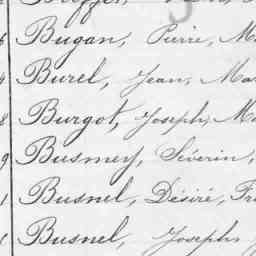 Bugan, Pierre, Ma
Burel, Jean, Ma
Burgot, Joseph, Ma
Busmey, Séverin,
Busnel, Désiré, Fra
Busnel, Joseph